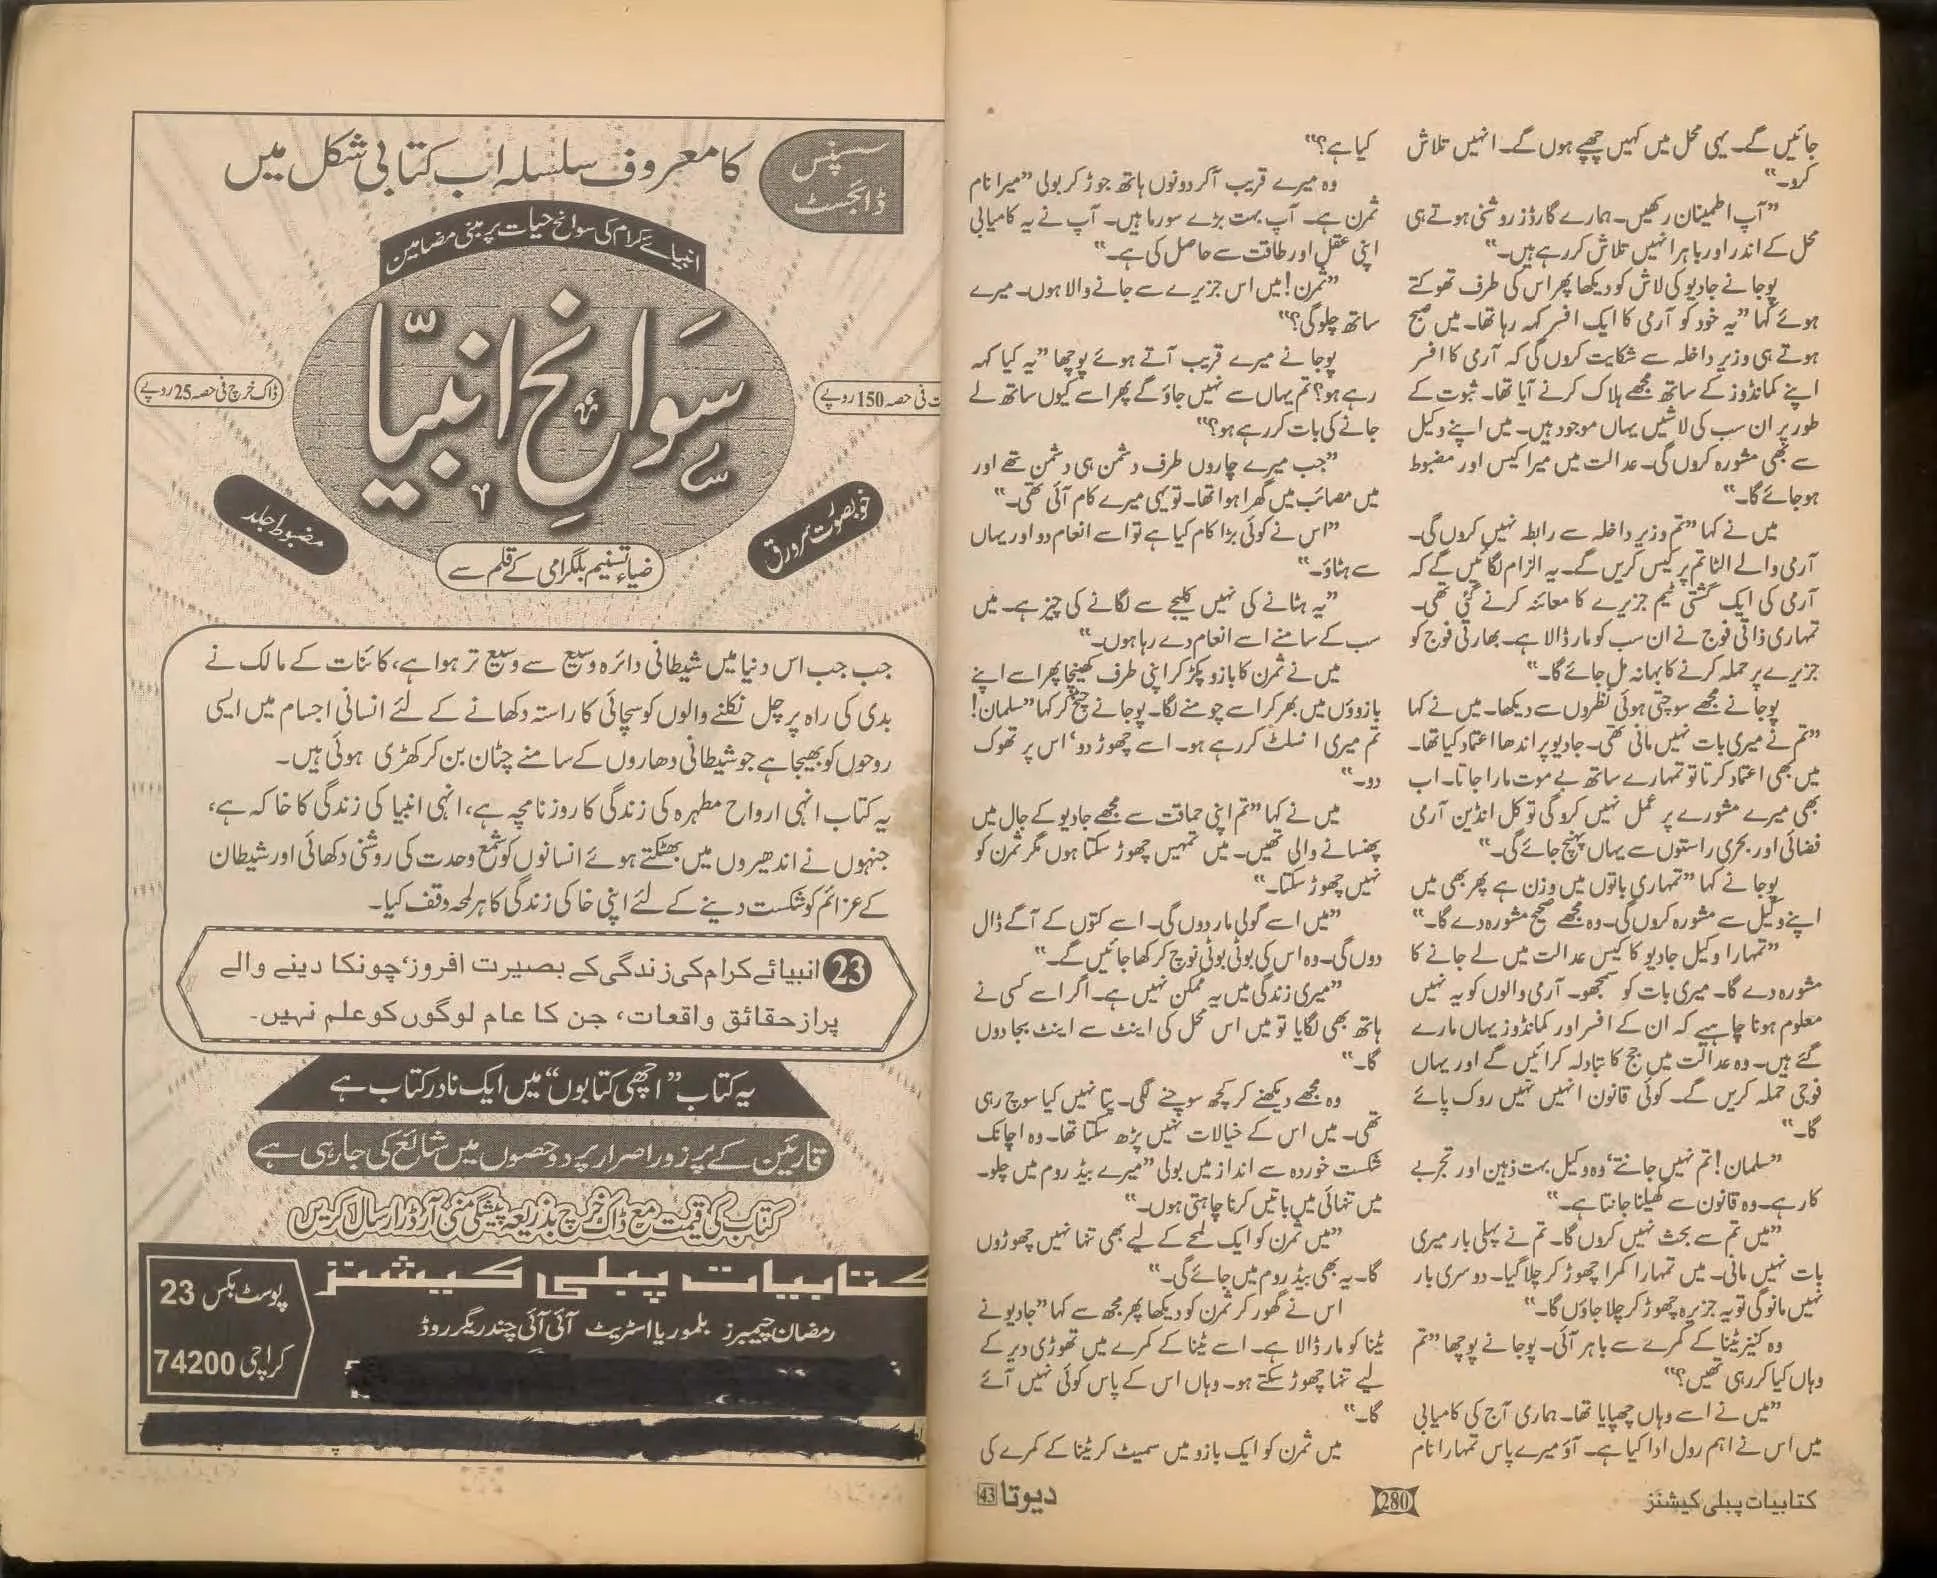 جائیں گے۔ یہی محل میں کہیں چھپے ہوں گے۔ انہیں تلاش
کرو۔"
"آپ اطمینان رکھیں۔ ہمارے گارڈز روشنی ہوتے ہی
محل کے اندر اور باہر انہیں تلاش کر رہے ہیں۔"
پوجا نے جادیو کی لاش کو دیکھا پھر اس کی طرف تھوکتے
ہوئے کہا "یہ خود کو آرمی کا ایک افسر کہہ رہا تھا۔ میں صبح
ہوتے ہی وزیر داخلہ سے شکایت کروں گی کہ آرمی کا افسر
اپنے کمانڈوز کے ساتھ مجھے ہلاک کرنے آیا تھا۔ ثبوت کے
طور پر ان سب کی لاشیں یہاں موجود ہیں۔ میں اپنے وکیل
سے بھی مشورہ کروں گی۔ عدالت میں میرا کیس اور مضبوط
ہو جائے گا۔"
میں نے کہا "تم وزیر داخلہ سے رابطہ نہیں کروں گی۔
آرمی والے الٹا تم پر کیس کریں گے۔ یہ الزام لگائیں گے کہ
آرمی کی ایک گشتی ٹیم جزیرے کا معائنہ کرنے گئی تھی۔
تمہاری ذاتی فوج نے ان سب کو مار ڈالا ہے۔ بھارتی فوج کو
جزیرے پر حملہ کرنے کا بہانہ مل جائے گا۔"
پوجا نے مجھے سوچتی ہوئی نظروں سے دیکھا۔ میں نے کہا
"تم نے میری بات نہیں مانی تھی۔ جادیو پر اندھا اعتماد کیا تھا۔
میں بھی اعتماد کرتا تو تمہارے ساتھ بے موت مارا جاتا۔ اب
بھی میرے مشورے پر عمل نہیں کرو گی تو کل انڈین آرمی
فضائی اور بحری راستوں سے یہاں پہنچ جائے گی۔"
پوجا نے کہا "تمہاری باتوں میں وزن ہے پھر بھی میں
اپنے وکیل سے مشورہ کروں گی۔ وہ مجھے صحیح مشورہ دے گا۔"
"تمہارا وکیل جادیو کا کیس عدالت میں لے جانے کا
مشورہ دے گا۔ میری بات کو سمجھو۔ آرمی والوں کو یہ نہیں
معلوم ہونا چاہیے کہ ان کے افسر اور کمانڈوز یہاں مارے
گئے ہیں۔ وہ عدالت میں جج کا تبادلہ کرائیں گے اور یہاں
فوجی حملہ کریں گے۔ کوئی قانون انہیں نہیں روک پائے
گا۔"
"سلمان! تم نہیں جانتے' وہ وکیل بہت ذہین اور تجربے
کار ہے۔ وہ قانون سے کھیلنا جانتا ہے۔"
"میں تم سے بحث نہیں کروں گا۔ تم نے پہلی بار میری
بات نہیں مانی۔ میں تمہارا کمرا چھوڑ کر چلا گیا۔ دوسری بار
نہیں مانو گی تو یہ جزیرہ چھوڑ کر چلا جاؤں گا۔"
وہ کنیز ٹینا کے کمرے سے باہر آئی۔ پوجا نے پوچھا "تم
وہاں کیا کر رہی تھیں؟"
"میں نے اسے وہاں چھپایا تھا۔ ہماری آج کی کامیابی
میں اس نے اہم رول ادا کیا ہے۔ آؤ میرے پاس تمہارا نام
کیا ہے؟"
وہ میرے قریب آ کر دونوں ہاتھ جوڑ کر بولی "میرا نام
ثمرن ہے۔ آپ بہت بڑے سورما ہیں۔ آپ نے یہ کامیابی
اپنی عقل اور طاقت سے حاصل کی ہے۔"
"ثمرن! میں اس جزیرے سے جانے والا ہوں۔ میرے
ساتھ چلو گی؟"
پوجا نے میرے قریب آتے ہوئے پوچھا "یہ کیا کہہ
رہے ہو؟ تم یہاں سے نہیں جاؤ گے پھر اسے کیوں ساتھ لے
جانے کی بات کر رہے ہو؟"
"جب میرے چاروں طرف دشمن ہی دشمن تھے اور
میں مصائب میں گھرا ہوا تھا۔ تو یہی میرے کام آئی تھی۔"
"اس نے کوئی بڑا کام کیا ہے تو اسے انعام دو اور یہاں
سے ہٹاؤ۔"
"یہ ہٹانے کی نہیں کلیجے سے لگانے کی چیز ہے۔ میں
سب کے سامنے اسے انعام دے رہا ہوں۔"
میں نے ثمرن کا بازو پکڑ کر اپنی طرف کھینچا پھر اسے اپنے
بازوؤں میں بھر کر اسے چومنے لگا۔ پوجا نے چیخ کر کہا "سلمان!
تم میری انسلٹ کر رہے ہو۔ اسے چھوڑ دو' اس پر تھوک
دو۔"
میں نے کہا "تم اپنی حماقت سے مجھے جادیو کے جال میں
پھنسانے والی تھیں۔ میں تمہیں چھوڑ سکتا ہوں مگر ثمرن کو
نہیں چھوڑ سکتا۔"
"میں اسے گولی مار دوں گی۔ اسے کتوں کے آگے ڈال
دوں گی۔ وہ اس کی بوٹی بوٹی نوچ کر کھا جائیں گے۔"
"میری زندگی میں یہ ممکن نہیں ہے۔ اگر اسے کسی نے
ہاتھ بھی لگایا تو میں اس محل کی اینٹ سے اینٹ بجا دوں
گا۔"
وہ مجھے دیکھنے کر کچھ سوچنے لگی۔ پتا نہیں کیا سوچ رہی
تھی۔ میں اس کے خیالات نہیں پڑھ سکتا تھا۔ وہ اچانک
شکست خوردہ سے انداز میں بولی "میرے بیڈ روم میں چلو۔
میں تنہائی میں باتیں کرنا چاہتی ہوں۔"
"میں ثمرن کو ایک لمحے کے لیے بھی تنہا نہیں چھوڑوں
گا۔ یہ بھی بیڈ روم میں جائے گی۔"
اس نے گھور کر ثمرن کو دیکھا پھر مجھ سے کہا "جادیو نے
ٹینا کو مار ڈالا ہے۔ اسے ٹینا کے کمرے میں تھوڑی دیر کے
لیے تنہا چھوڑ سکتے ہو۔ وہاں اس کے پاس کوئی نہیں آئے
گا۔"
میں ثمرن کو ایک بازو میں سمیٹ کر ٹینا کے کمرے کی
کتابیات پبلی کیشنز
280
دیوتا 43
سسپنس
ڈائجسٹ
کا معروف سلسلہ اب کتابی شکل میں
انبیائے کرام کی سوانح حیات پر مبنی مضامین
سوانح انبیا
ت فی حصہ 150 روپے
ڈاک خرچ فی حصہ 25 روپے
خوبصورت سرورق
مضبوط جلد
ضیاء تسنیم بلگرامی کے قلم سے
جب جب اس دنیا میں شیطانی دائرہ وسیع سے وسیع تر ہوا ہے، کائنات کے مالک نے
بدی کی راہ پر چل نکلنے والوں کو سچائی کا راستہ دکھانے کے لئے انسانی اجسام میں ایسی
روحوں کو بھیجا ہے جو شیطانی دھاروں کے سامنے چٹان بن کر کھڑی ہوئی ہیں۔
یہ کتاب انہی ارواح مطہرہ کی زندگی کا روزنامچہ ہے، انہی انبیا کی زندگی کا خاکہ ہے،
جنہوں نے اندھیروں میں بھٹکتے ہوئے انسانوں کو شمع وحدت کی روشنی دکھائی اور شیطان
کے عزائم کو شکست دینے کے لئے اپنی خاکی زندگی کا ہر لمحہ وقف کیا۔
23 انبیائے کرام کی زندگی کے بصیرت افروز' چونکا دینے والے
پر از حقائق واقعات، جن کا عام لوگوں کو علم نہیں۔
یہ کتاب "اچھی کتابوں" میں ایک نادر کتاب ہے
قارئین کے پر زور اصرار پر دو حصوں میں شائع کی جا رہی ہے
کتاب کی قیمت مع ڈاک خرچ بذریعہ پیشگی منی آرڈر ارسال کریں
کتابیات پبلی کیشنز
رمضان چیمبرز بلموریا اسٹریٹ آئی آئی چندریگر روڈ
پوسٹ بکس 23
کراچی 74200